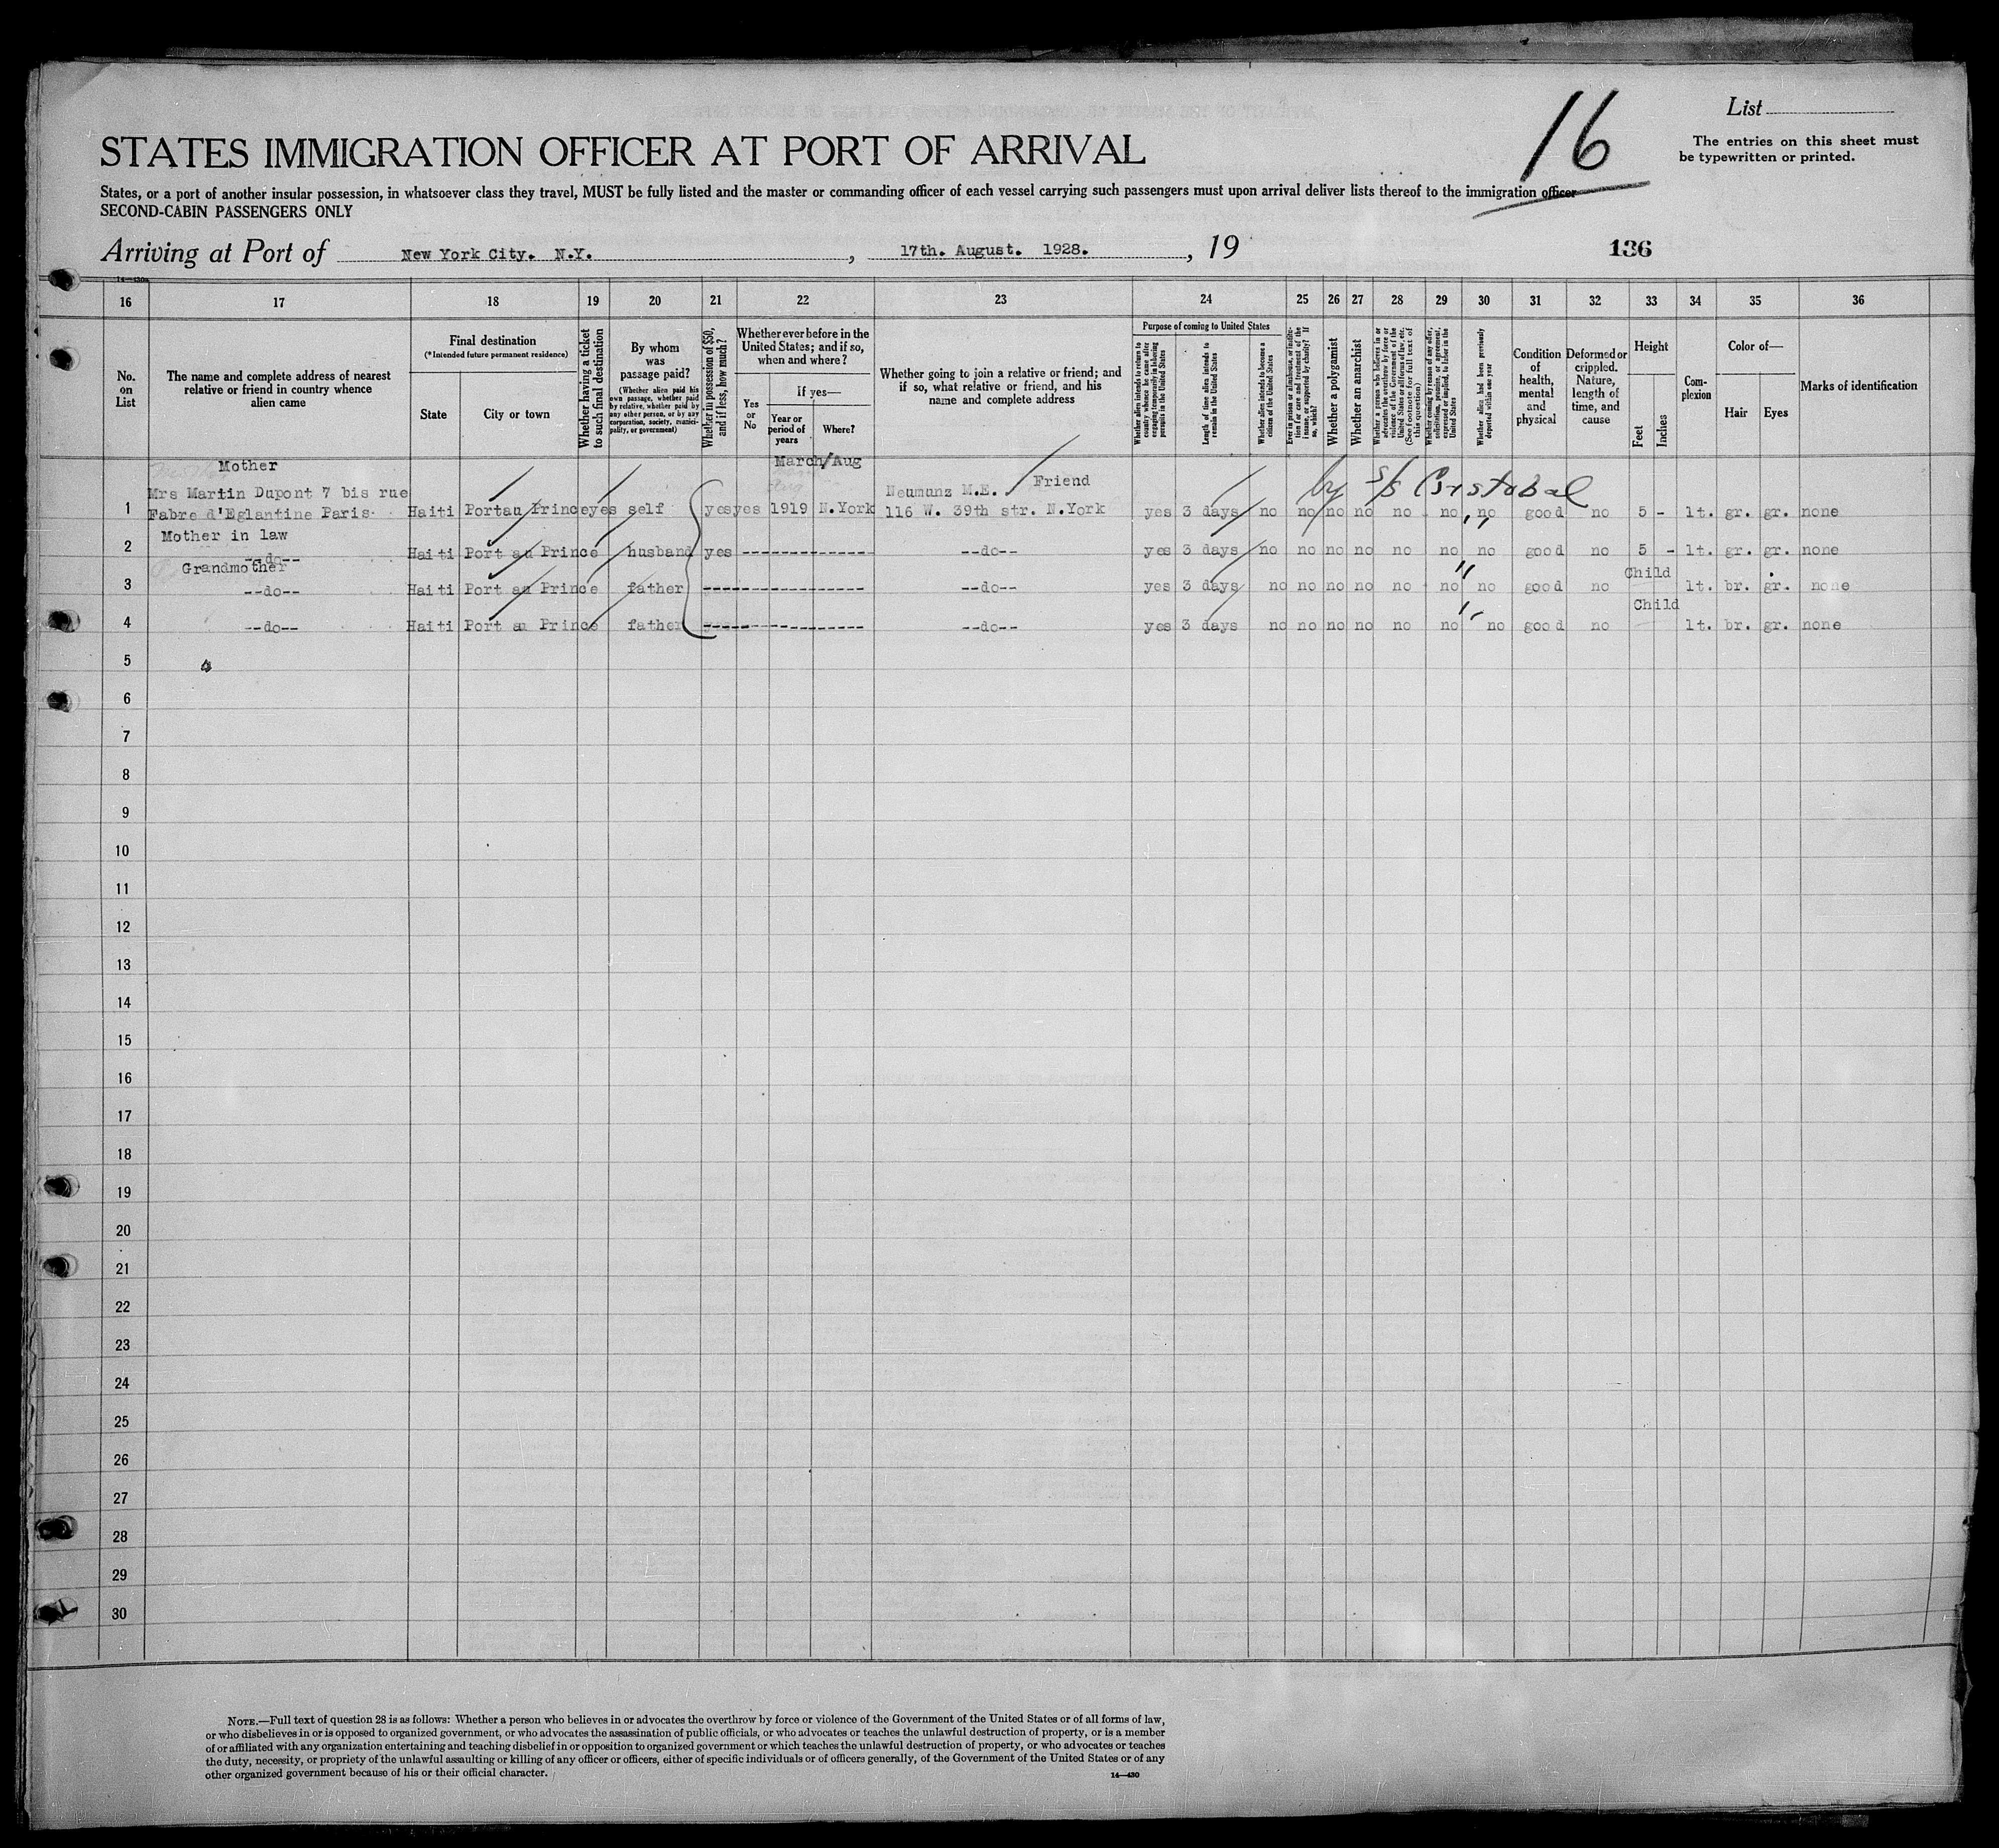 List
16
The entries on this sheet must
be typewritten or printed.
STATES IMMIGRATION OFFICER AT PORT OF ARRIVAL
States, or a port of another insular possession, in whatsoever class they travel, MUST be fully listed and the master or commanding officer of each vessel carrying such passengers must upon arrival deliver lists thereof to the immigration officer
SECOND-CABIN PASSENGERS ONLY
Arriving at Port of New York City. N.Y. , 17th. August. 1928. , 19
136
14—430
16 17 18 19 20 21 22 23 24 25 26 27 28 29 30 31 32 33 34 35 36
No. on List
The name and complete address of nearest relative or friend in country whence alien came
Final destination
(*Intended future permanent residence)
State
City or town
Whether having a ticket to such final destination
By whom was passage paid?
(Whether alien paid his own passage, whether paid by relative, whether paid by any other person, or by any corporation, society, municipality, or government)
Whether in possession of $50, and if less, how much?
Whether ever before in the United States; and if so, when and where?
Yes or No
If yes—
Year or period of years
Where?
Whether going to join a relative or friend; and if so, what relative or friend, and his name and complete address
Purpose of coming to United States
Whether alien intends to return to country whence he came after engaging temporarily in laboring pursuits in the United States
Length of time alien intends to remain in the United States
Whether alien intends to become a citizen of the United States
Ever in prison or almshouse, or institution for care and treatment of the insane, or supported by charity? If so, which?
Whether a polygamist
Whether an anarchist
Whether a person who believes in or advocates the overthrow by force or violence of the Government of the United States or all forms of law, etc. (See footnote for full text of this question)
Whether coming by reason of any offer, solicitation, promise, or agreement, expressed or implied, to labor in the United States
Whether alien had been previously deported within one year
Condition of health, mental and physical
Deformed or crippled. Nature, length of time, and cause
Height
Feet
Inches
Complexion
Color of—
Hair
Eyes
Marks of identification
Mother March/Aug
Mrs Martin Dupont 7 bis rue Neumans M.E. Friend by S/S Cristobal
1 Fabre d'Eglantine Paris Haiti Portau Prince yes self yes yes 1919 N.York 116 W. 39th str. N.York yes 3 days no no no no no no no good no 5 - lt. gr. gr. none
Mother in law
2 --do-- Haiti Port au Prince husband yes --do-- yes 3 days no no no no no no no good no 5 - lt. gr. gr. none
Grandmother Child
3 --do-- Haiti Port au Prince father --do-- yes 3 days no no no no no no no good no lt. br. gr. none
Child
4 --do-- Haiti Port au Prince father --do-- yes 3 days no no no no no no no good no lt. br. gr. none
5
6
7
8
9
10
11
12
13
14
15
16
17
18
19
20
21
22
23
24
25
26
27
28
29
30
NOTE.—Full text of question 28 is as follows: Whether a person who believes in or advocates the overthrow by force or violence of the Government of the United States or of all forms of law,
or who disbelieves in or is opposed to organized government, or who advocates the assassination of public officials, or who advocates or teaches the unlawful destruction of property, or is a member
of or affiliated with any organization entertaining and teaching disbelief in or opposition to organized government or which teaches the unlawful destruction of property, or who advocates or teaches
the duty, necessity, or propriety of the unlawful assaulting or killing of any officer or officers, either of specific individuals or of officers generally, of the Government of the United States or of any
other organized government because of his or their official character.
14—430